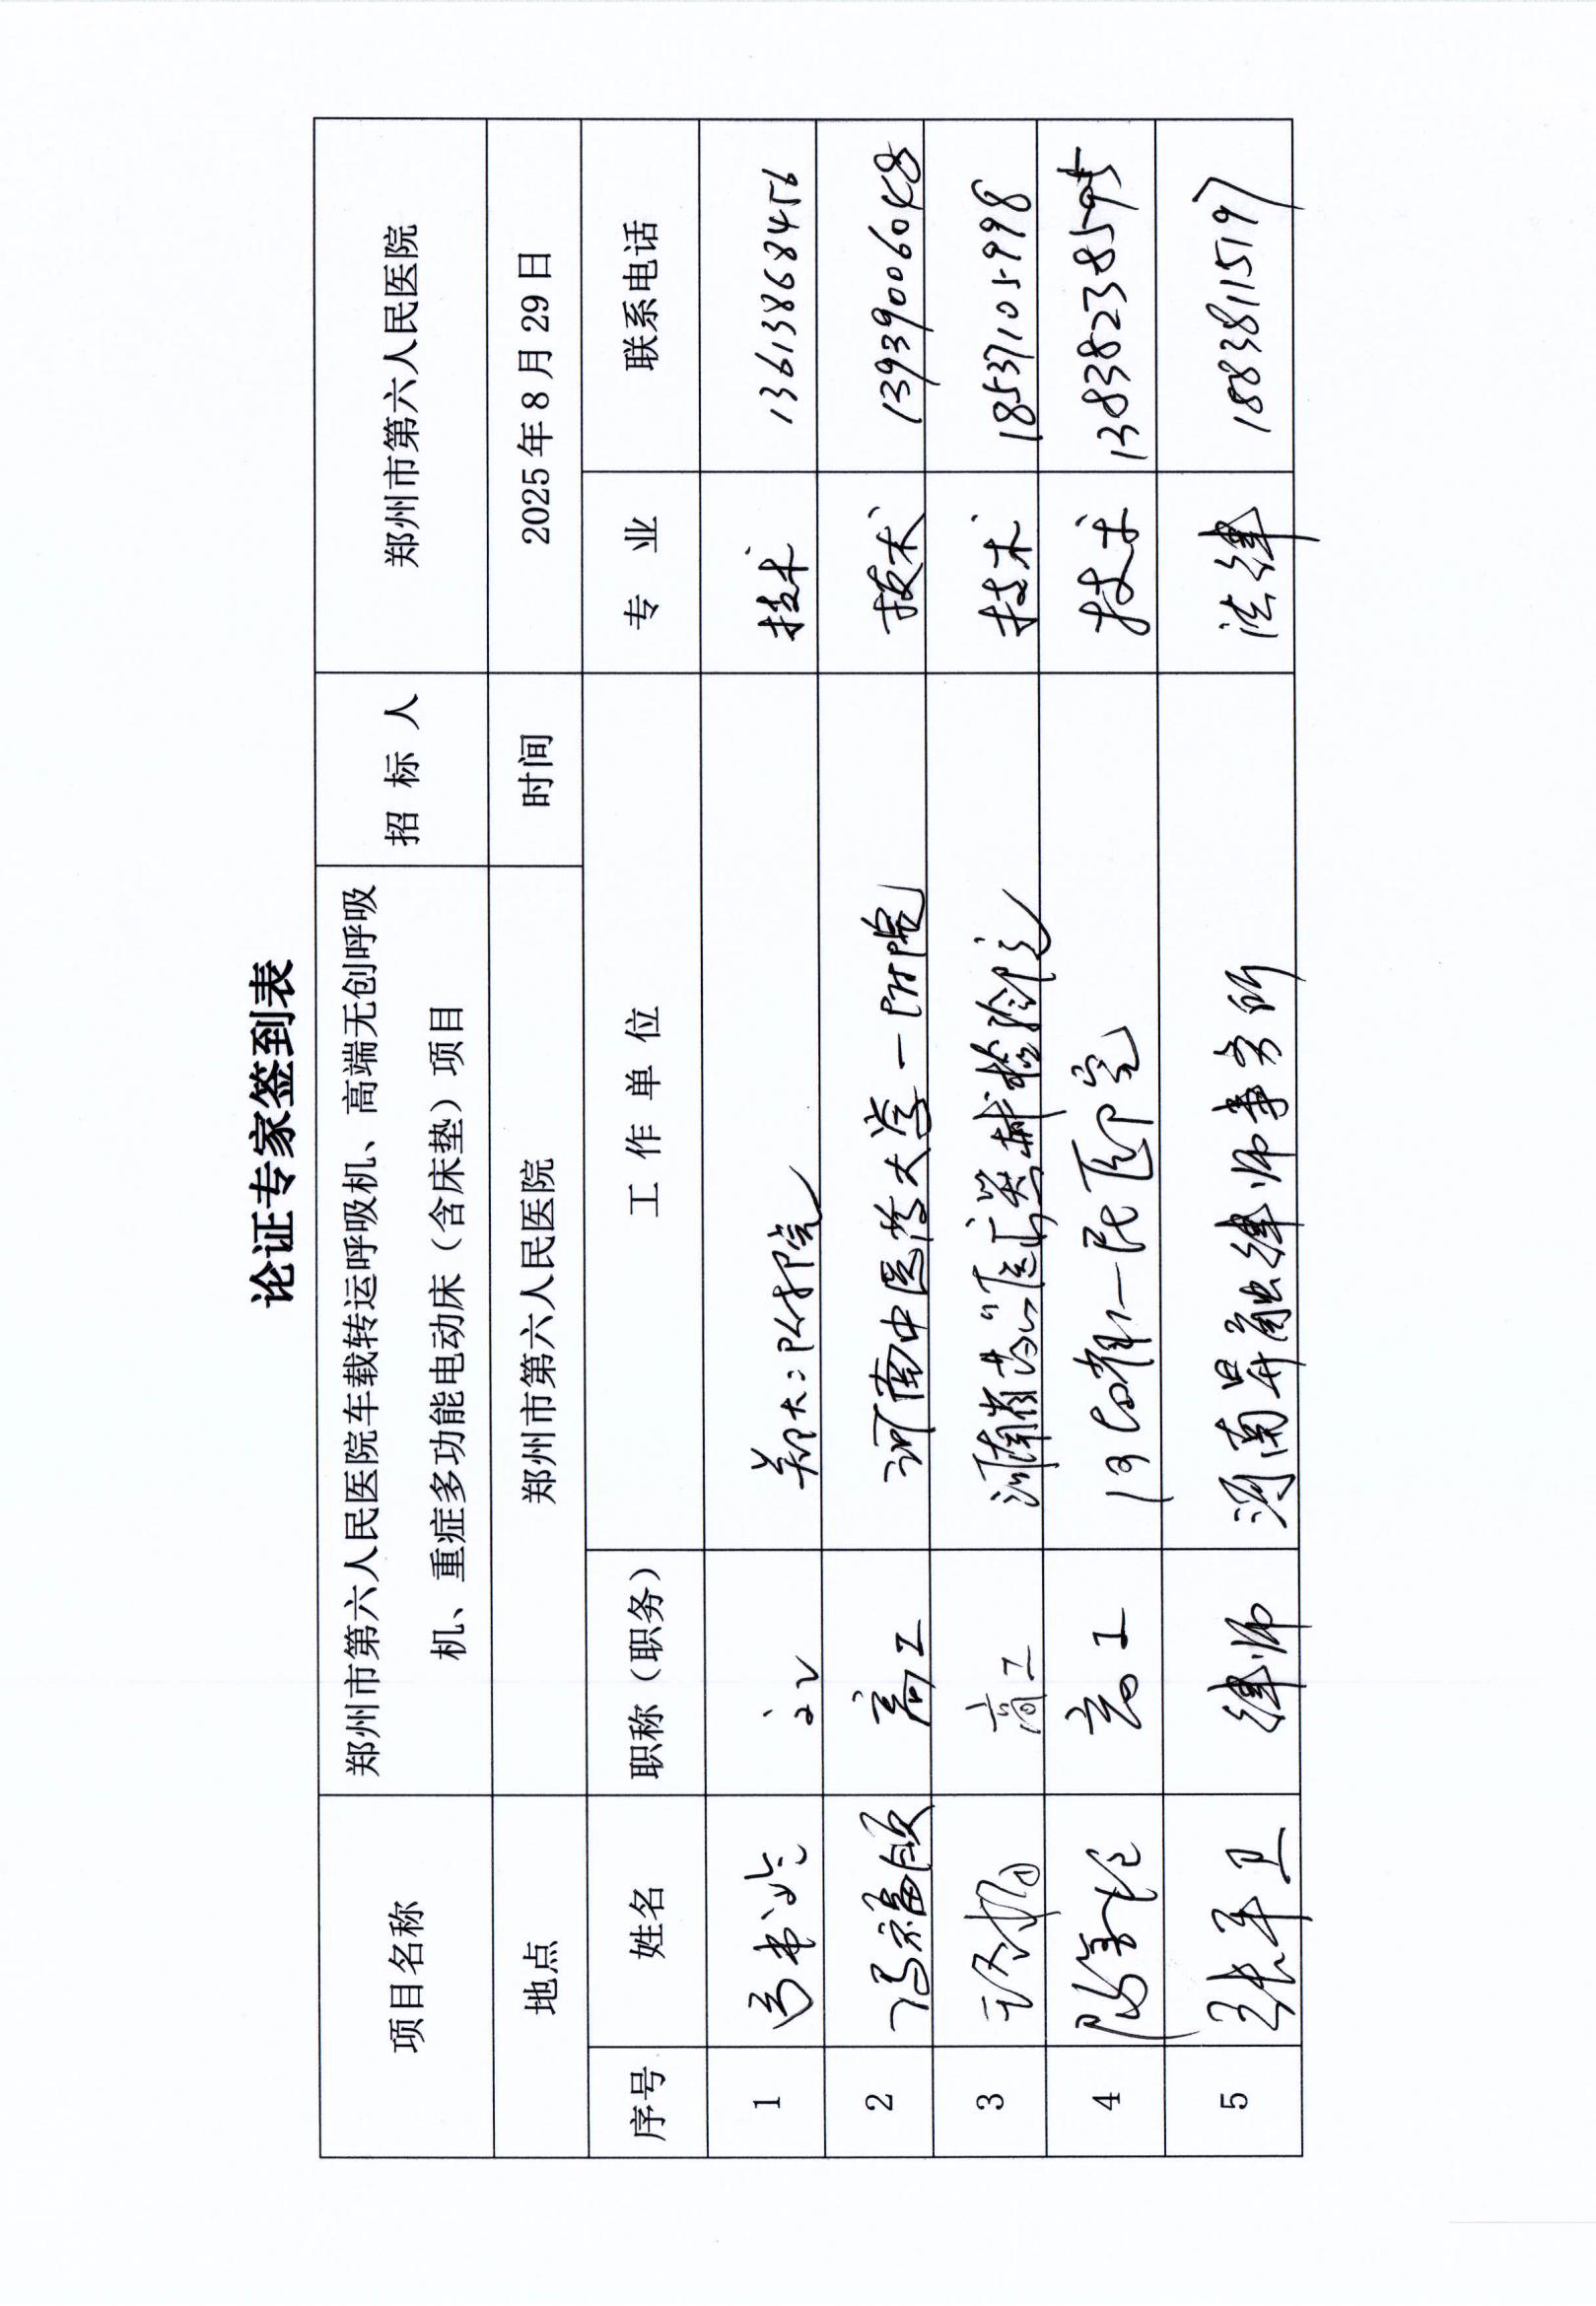 论证专家签到表
项目名称 郑州市第六人民医院车载转运呼吸机、高端无创呼吸
机、重症多功能电动床（含床垫）项目 招标人 郑州市第六人民医院
地点 郑州市第六人民医院 时间 2025年8月29日
序号 姓名 职称（职务） 工作单位 专业 联系电话
1 郑大二附院 技术 13613868456
2 高工 河南中医药大学一附院 技术 13939006048
3 高工 技术 18537105998
4 高工 技术 13838238595
5 律师 律师事务所 法律 18838115197